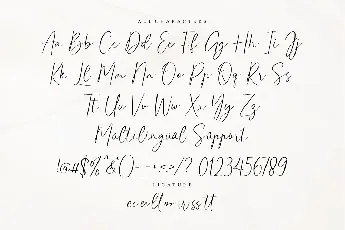 ALL CHARACTERS
Aa Bb Cc Dd Ee Ff Gg Hh Ii Jj
Kk Ll Mm Nn Oo Pp Qq Rr Ss
Tt Uu Vv Ww Xx Yy Zz
Multilingual Support
!@#$%^&*()-+=:;/? 0123456789
LIGATURE